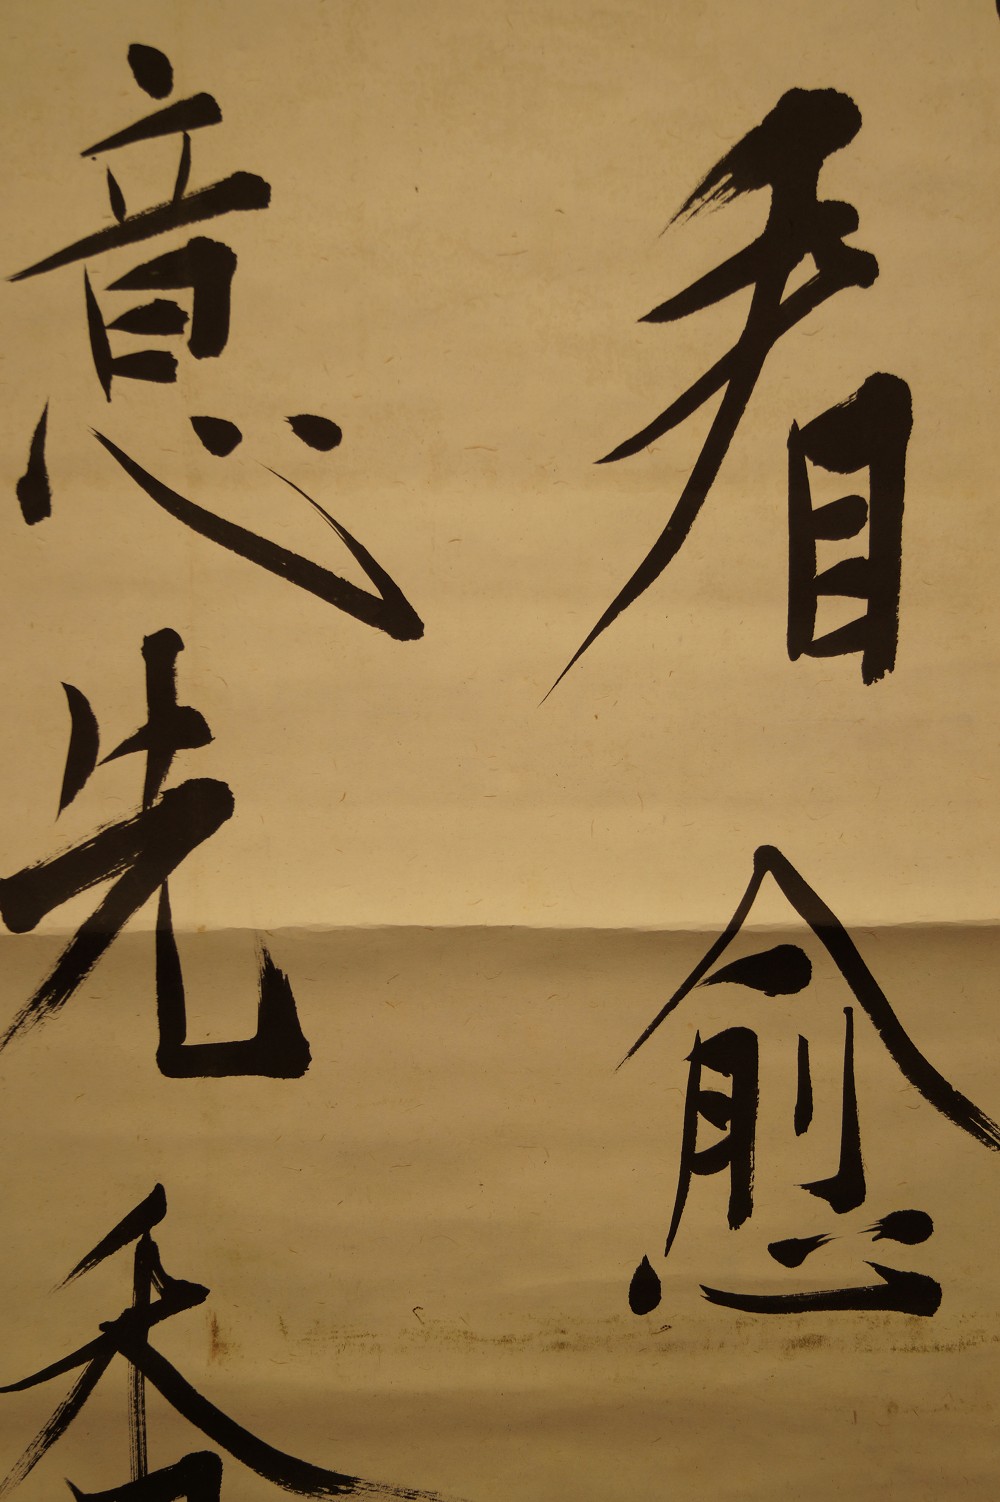 看愈
意先香